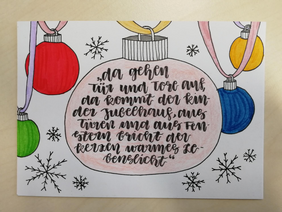 „da gehen
Tür und Tore auf,
da kommt der Kin-
der Jubelhauf, aus
Türen und aus Fen-
stern bricht der
Kerzen warmes Le-
benslicht“